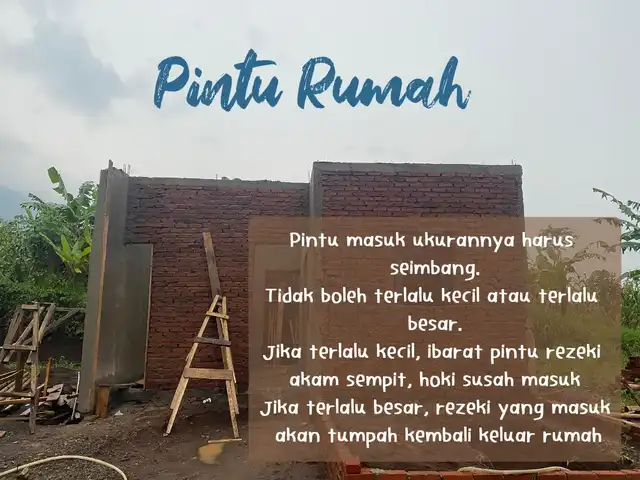 Pintu Rumah
Pintu masuk ukurannya harus
seimbang.
Tidak boleh terlalu kecil atau terlalu
besar.
Jika terlalu kecil, ibarat pintu rezeki
akam sempit, hoki susah masuk
Jika terlalu besar, rezeki yang masuk
akan tumpah kembali keluar rumah